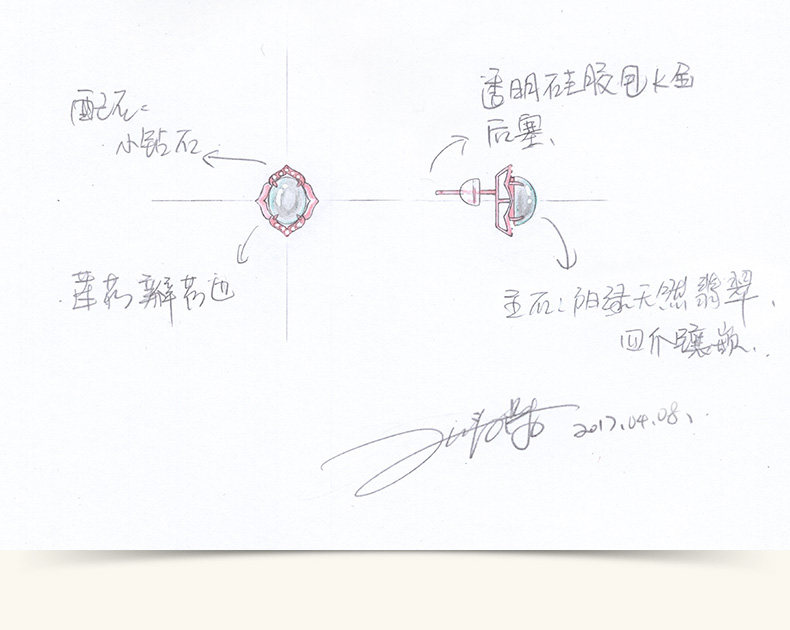 配石:
小钻石
透明硅胶包K金
后塞、
莲花瓣花边
主石:阳绿天然翡翠,
四爪镶嵌.
2017.04.08、